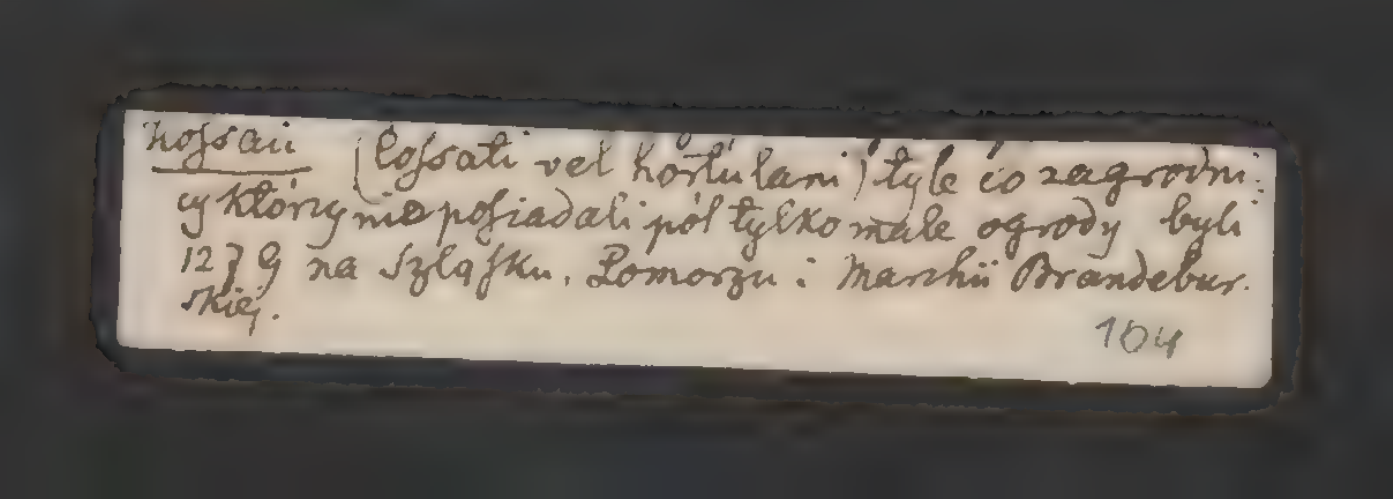 Kossaci (Cossati vel hortulani) tyle co zagrodni:
cy którzy nie posiadali pól tylko małe ogrody byli
1279 na Szląsku, Pomorzu i Marchii Brandebur.
skiej.
104